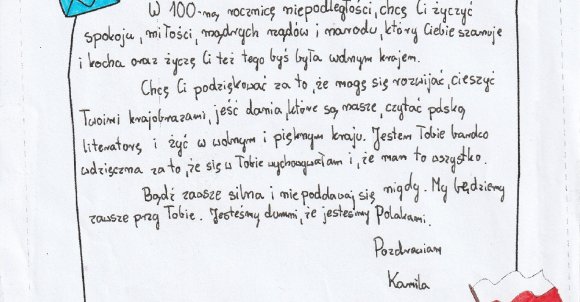 W 100-ną rocznicę niepodległości, chcę Ci życzyć
spokoju, miłości, mądrych rządów i narodu, który Ciebie szanuje
i kocha oraz życzę Ci też tego byś była wolnym krajem.
Chcę Ci podziękować za to, że mogę się rozwijać, cieszyć
Twoimi krajobrazami, jeść dania, które są nasze, czytać polską
literaturę i żyć w wolnym i pięknym kraju. Jestem Tobie bardzo
wdzięczna za to, że się w Tobie wychowywałam i, że mam to wszystko.
Bądź zawsze silna i nie poddawaj się nigdy. My będziemy
zawsze przy Tobie. Jesteśmy dumni, że jesteśmy Polakami.
Pozdrawiam
Kamila